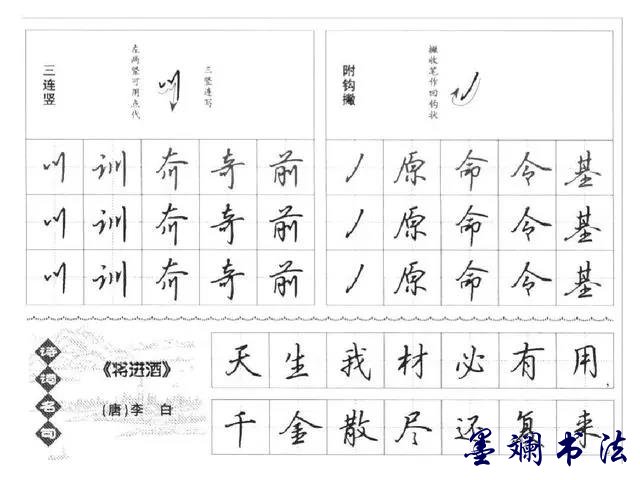 三连竖
左两竖可用点代
三竖连写
附钩撇
撇收笔作回钩状
训 奇 前
丿 原 命 令 基
训 奇 前
丿 原 命 令 基
训 奇 前
丿 原 命 令 基
诗词名句
《将进酒》
(唐)李 白
天生我材必有用,
千金散尽还复来
墨斓书法